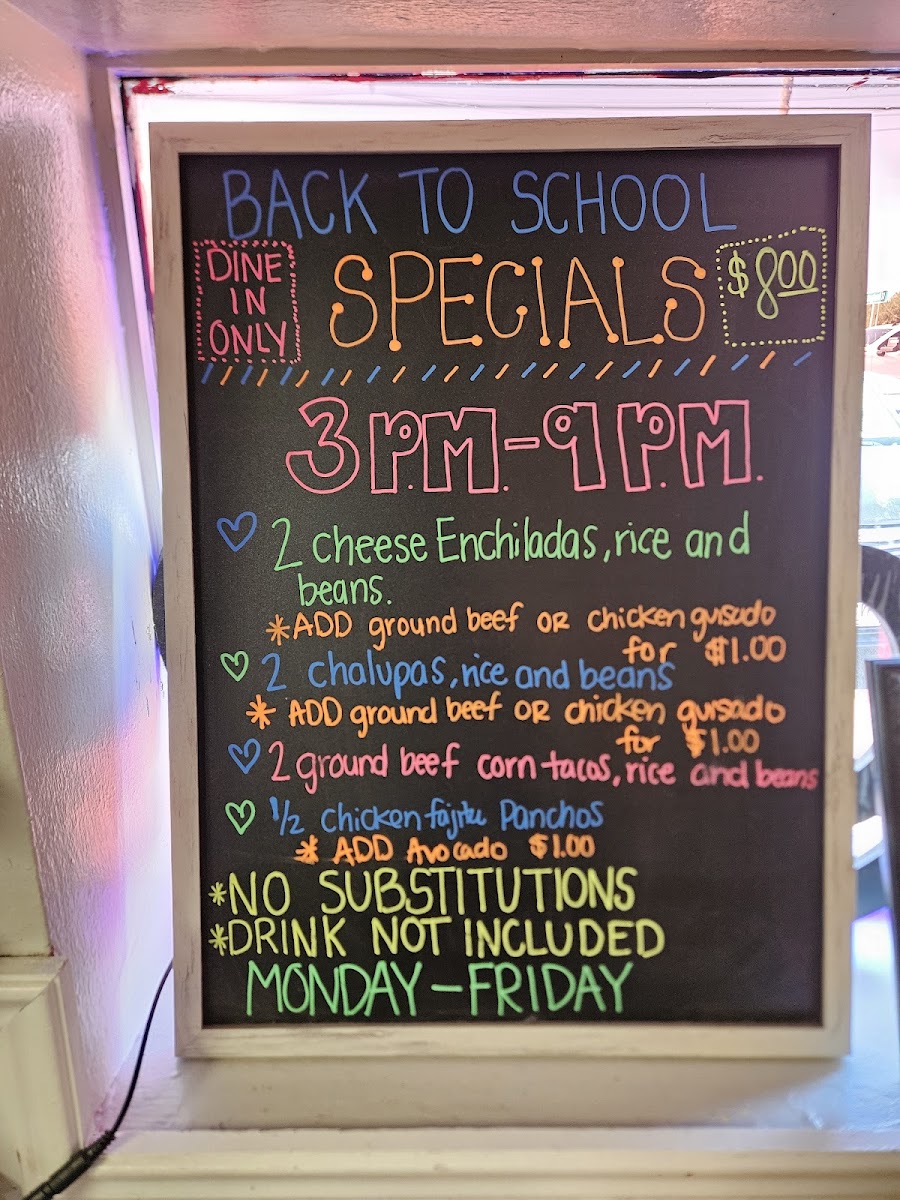 BACK TO SCHOOL
DINE IN ONLY
SPECIALS
$8.00
3P.M.-9P.M.
2 cheese Enchiladas, rice and
beans.
*ADD ground beef OR chicken guisado
for $1.00
2 chalupas, rice and beans
* ADD ground beef OR chicken guisado
for $1.00
2 ground beef corn tacos, rice and beans
1/2 chicken fajita Panchos
* ADD Avocado $1.00
*NO SUBSTITUTIONS
*DRINK NOT INCLUDED
MONDAY-FRIDAY